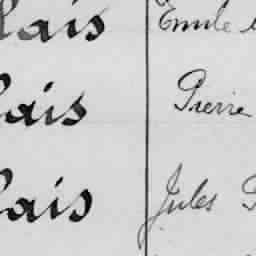 lais Emile
lais Pierre
lais Jules